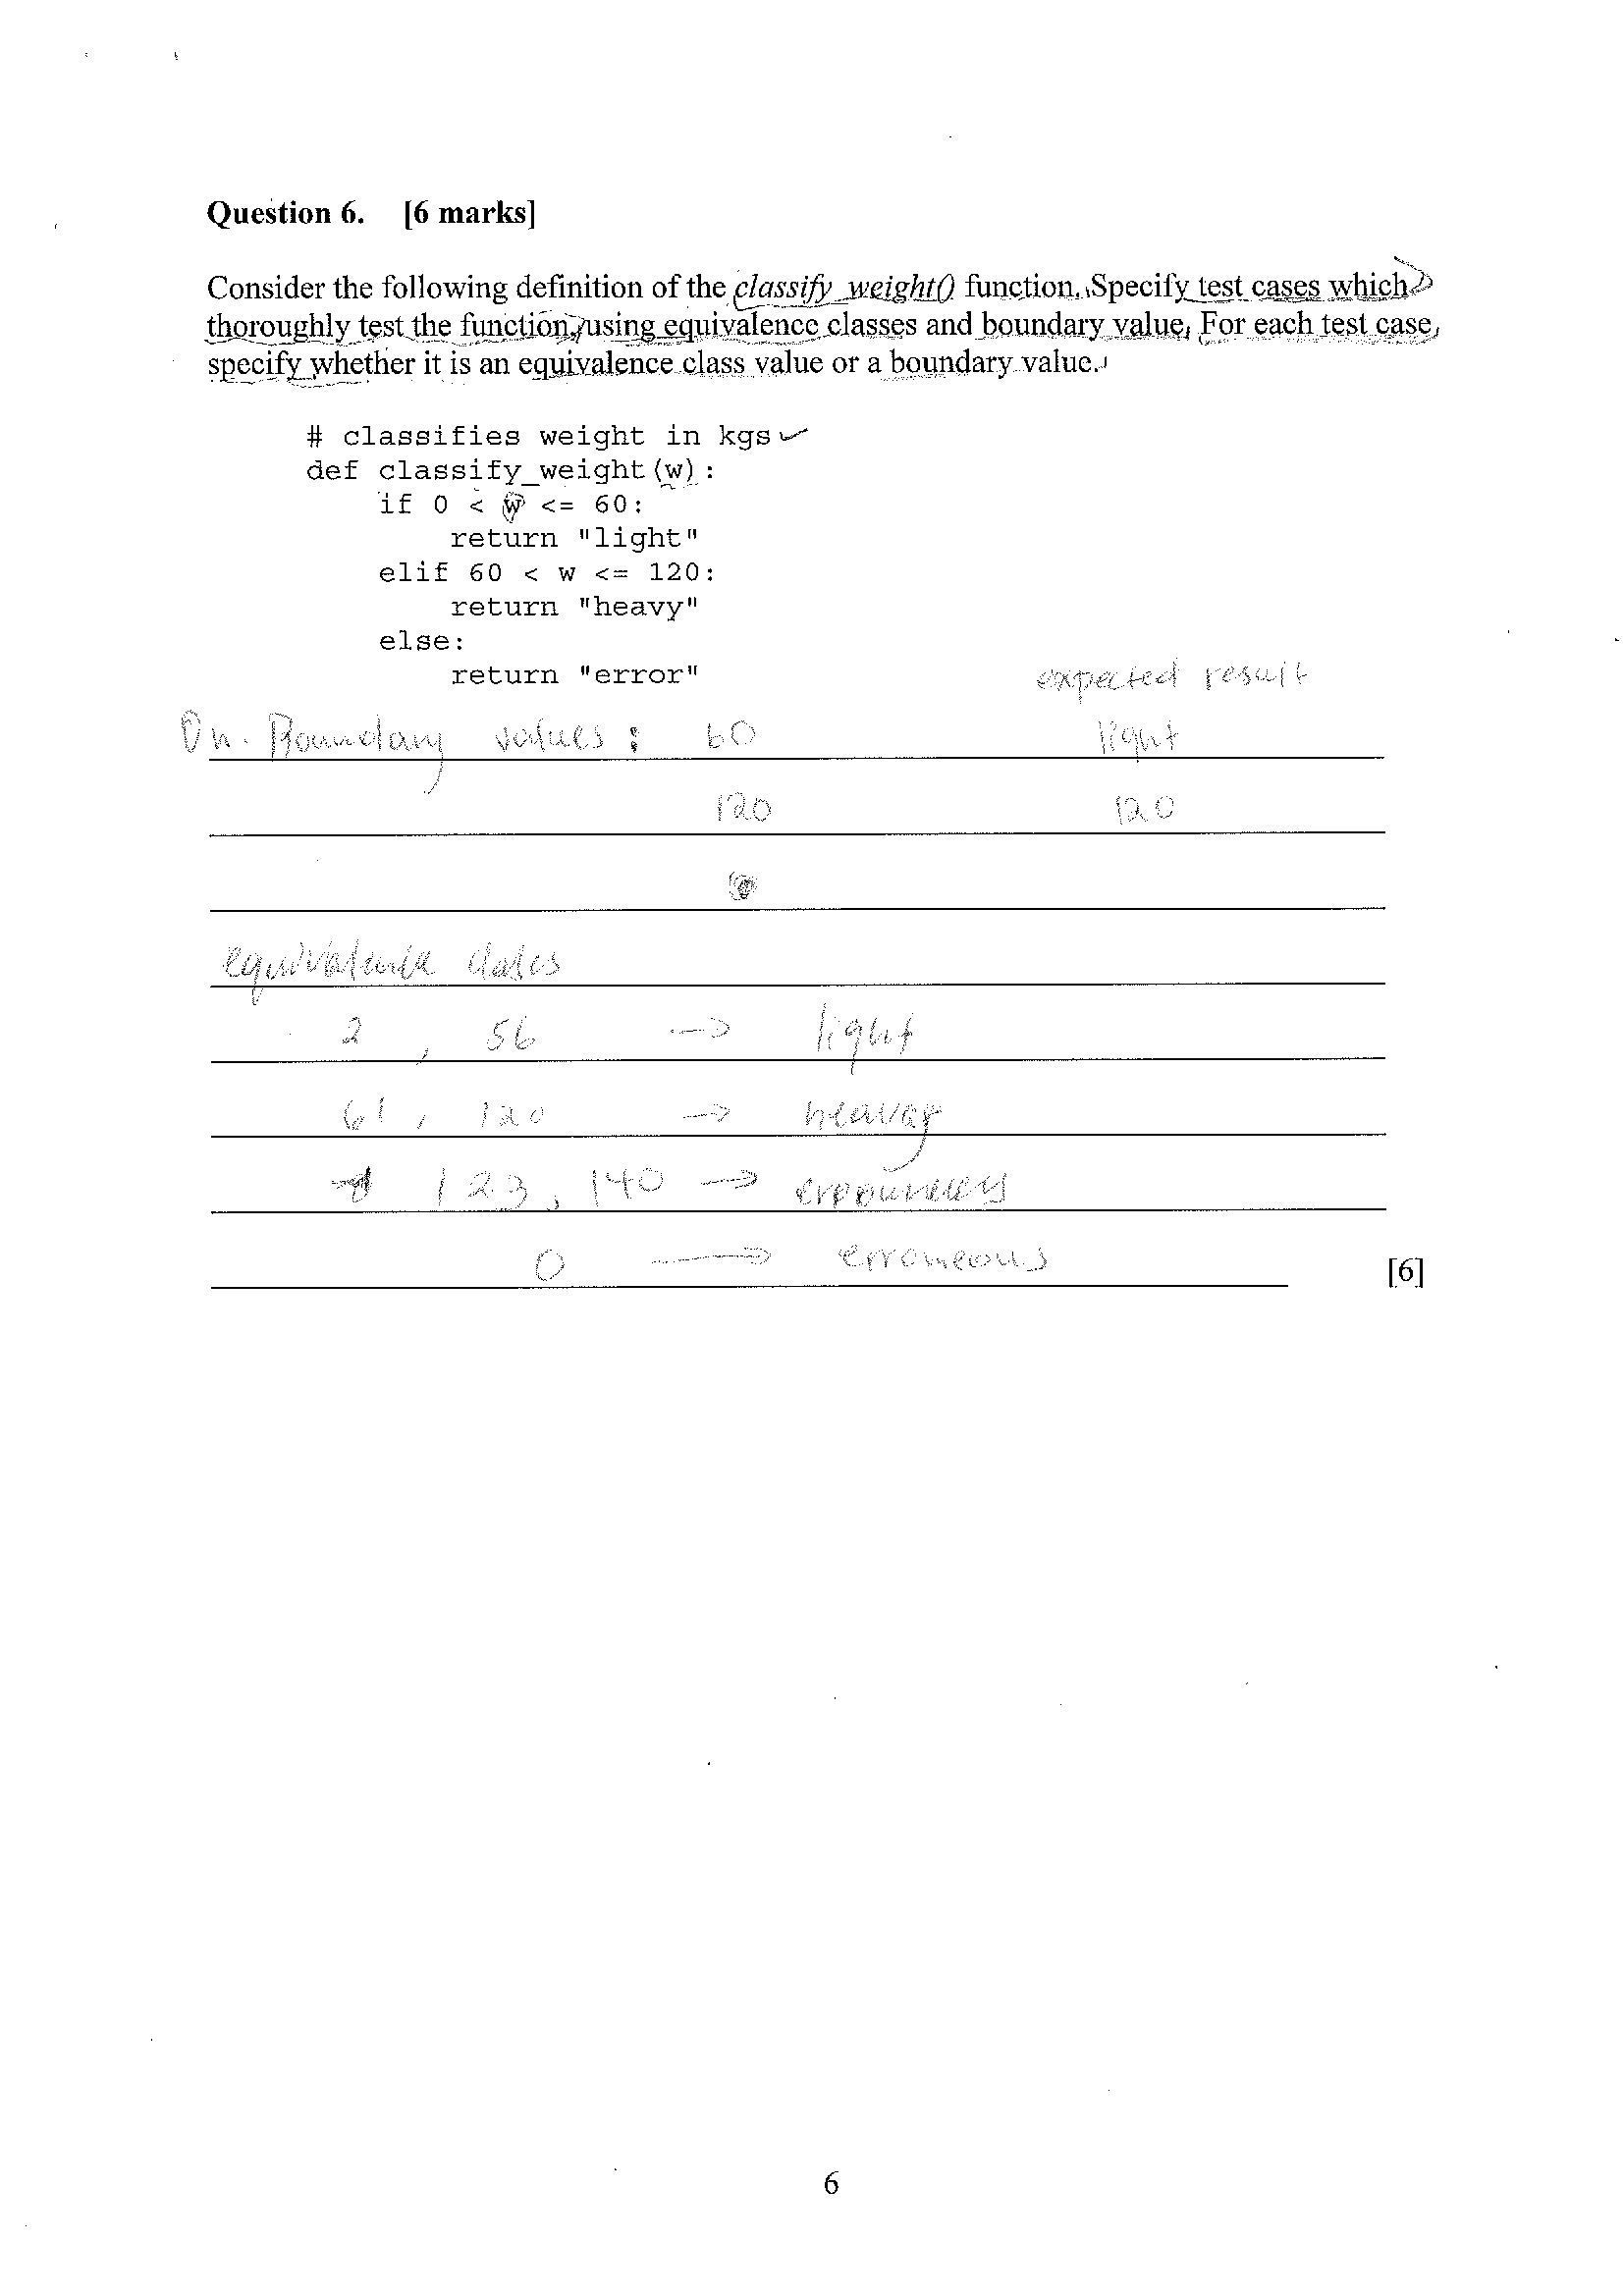 Question 6. [6 marks]
Consider the following definition of the classify_weight() function. Specify test cases which
thoroughly test the function, using equivalence classes and boundary value. For each test case,
specify whether it is an equivalence class value or a boundary value.
# classifies weight in kgs
def classify_weight(w):
if 0 < w <= 60:
return "light"
elif 60 < w <= 120:
return "heavy"
else:
return "error"
expected result
On. Boundary values : 60 light
120 120
equivalence
2 , 56 → light
61 , 120 → heavy
123 , 140 →
0 → erroneous
[6]
6